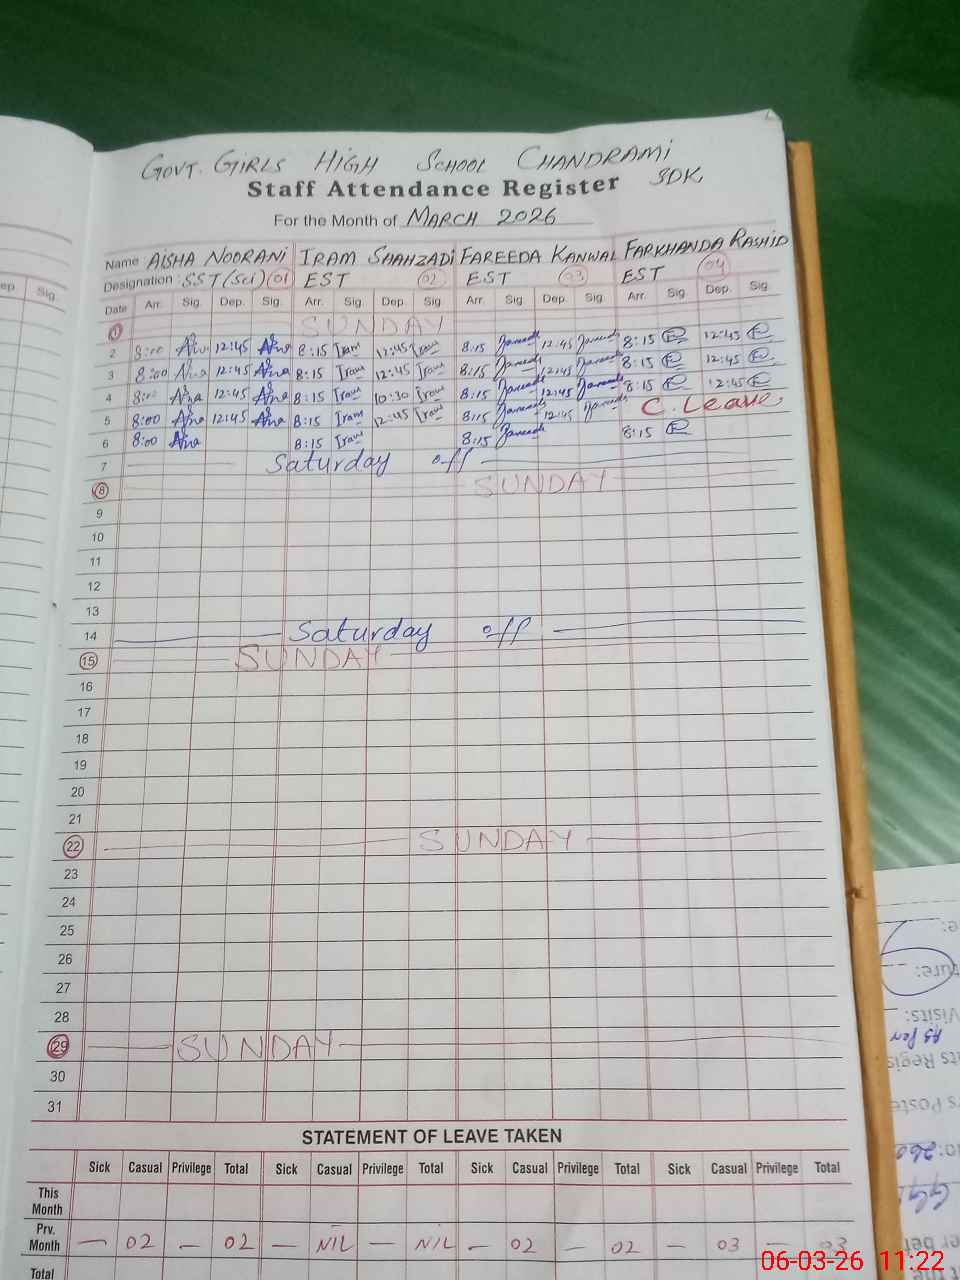 GOVT. GIRLS HIGH SCHOOL CHANDRAMI
Staff Attendance Register SDK,
For the Month of MARCH 2026
Name AISHA NOORANI IRAM SHAHZADI FAREEDA KANWAL FARKHANDA RASHID
Designation: SST (Sci) 01 EST 02 EST 03 EST 04
Date Arr. Sig. Dep. Sig. Arr. Sig. Dep. Sig. Arr. Sig Dep. Sig. Arr. Sig. Dep. Sig.
1 SUNDAY
2 8:00 12:45 8:15 Iram 12:45 Iram 8:15 12:45 8:15 12:45
3 8:00 12:45 8:15 Iram 12:45 Iram 8:15 12:45 8:15 12:45
4 8:00 12:45 8:15 Iram 10:30 Iram 8:15 12:45 8:15 12:45
5 8:00 12:45 8:15 Iram 12:45 Iram 8:15 12:45 C. Leave,
6 8:00 8:15 Iram 8:15 8:15
7 Saturday off
8 SUNDAY
9
10
11
12
13
14 Saturday off
15 SUNDAY
16
17
18
19
20
21
22 SUNDAY
23
24
25
26
27
28
29 SUNDAY
30
31
STATEMENT OF LEAVE TAKEN
Sick Casual Privilege Total Sick Casual Privilege Total Sick Casual Privilege Total Sick Casual Privilege Total
This Month
Prv. Month — 02 — 02 — NIL — NIL — 02 — 02 — 03 — 03
Total
06-03-26 11:22